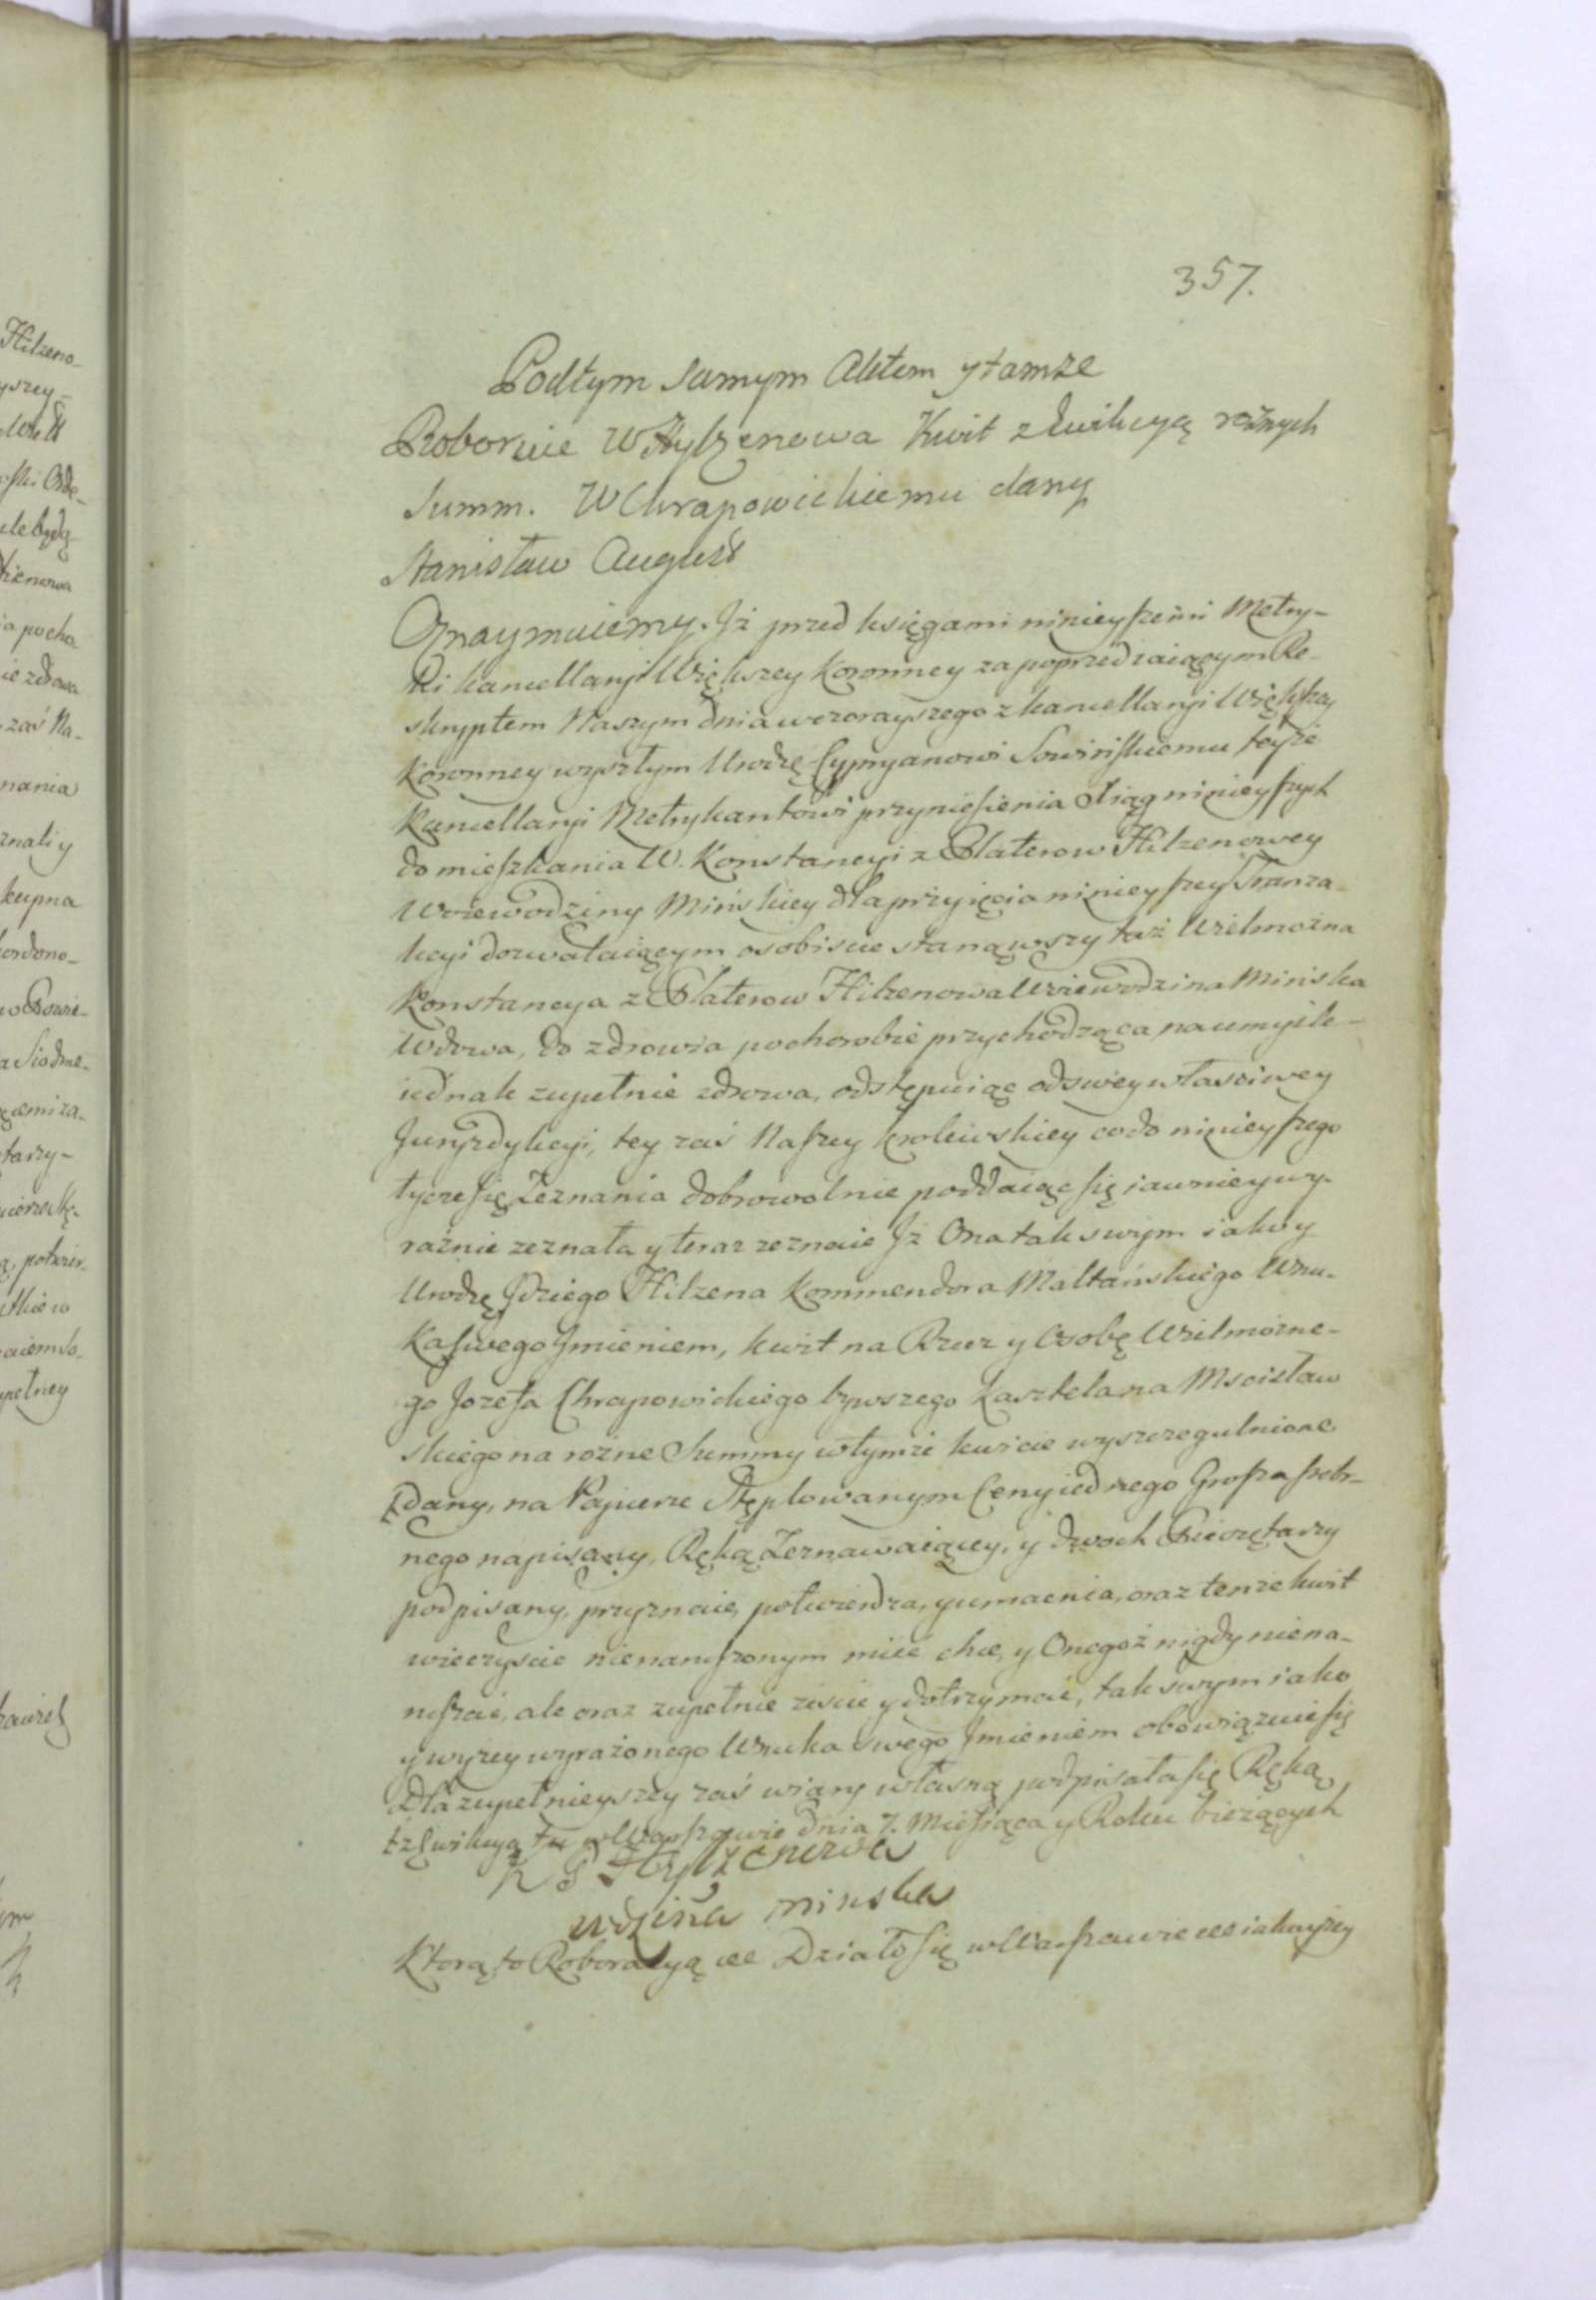 357.
Podtym samym Aktem y tamże
Roboruie W Hylzenowa Kwit z Ewikcyą rożnych
Summ. W Chrapowickiemu dany
Stanisław August
Oznaymuiemy. Jż przed księgami ninieyszemi Metry-
ki kancellaryi Większey Koronney za poprzedzaiącym Re-
skryptem Naszym dnia wczorayszego z kancellaryi Większey
Koronney wyszłym Urodzę Cypryanowi Sowińskiemu teyże
Kancellaryi Metrykantowi przyniesienia Xiąg ninieyszych
do mieszkania W. Konstancyi z Platerow Hilzenowey
Woiewodziny Mińskiey dla przyięcia ninieyszey Tranza-
kcyi dozwalaiącym osobiscie stanąwszy taż Wielmożna
Konstancya z Platerow Hilzenowa Woiewodzina Mińska
Wdowa, do zdrowia po chorobie przychodząca, na umyśle-
iednak zupełnie zdrowa, odstępuiąc od swey własciwey
Juryzdykcyi, tey zaś Naszey krolewskiey co do ninieyszego
tycze się Zeznania dobrowolnie poddaiąc się iawnie y wy-
raźnie zeznała y teraz zeznaie Jż Ona tak swym iako y
Urodzę Jdziego Hilzena Kommendora Maltańskiego Wnu-
ka swego Jmieniem, kwit na Rzecz y Osobę Wielmożne-
go Jozefa Chrapowickiego bywszego Kasztelana Mscisław
skiego na rożne Summy w tymże kwicie wyszczegulnione
ƚ dany, na Papierze Stęplowanym Ceny iednego Grosza srebr-
nego napisany, Ręką Zeznawaiącey, y dwoch Pieczętarzy
podpisany, przyznaie, potwierdza, y umacnia, oraz tenże kwit
wieczyscie nienaruszonym mieć chce, y Onegoż nigdy niena-
ruszać, ale oraz zupełnie ziscić y dotrzymać, tak swym iako
y wyżey wyrażonego Wnuka swego Jmieniem obowiązuie się
Dla zupełnieyszey zaś wiary własną podpisała się Ręką
ƚ z Ewikcyą tu w Warszawie dnia 7. Miesiąca y Roku bieżących
K P Hylzenowa
wdzina minska
Ktorą to Roborącyą &c Działo się w Warszawie &c iak wyżey